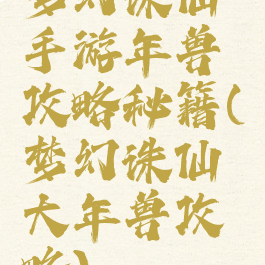 梦幻诛仙
手游年兽
攻略秘籍(
梦幻诛仙
大年兽攻
略)